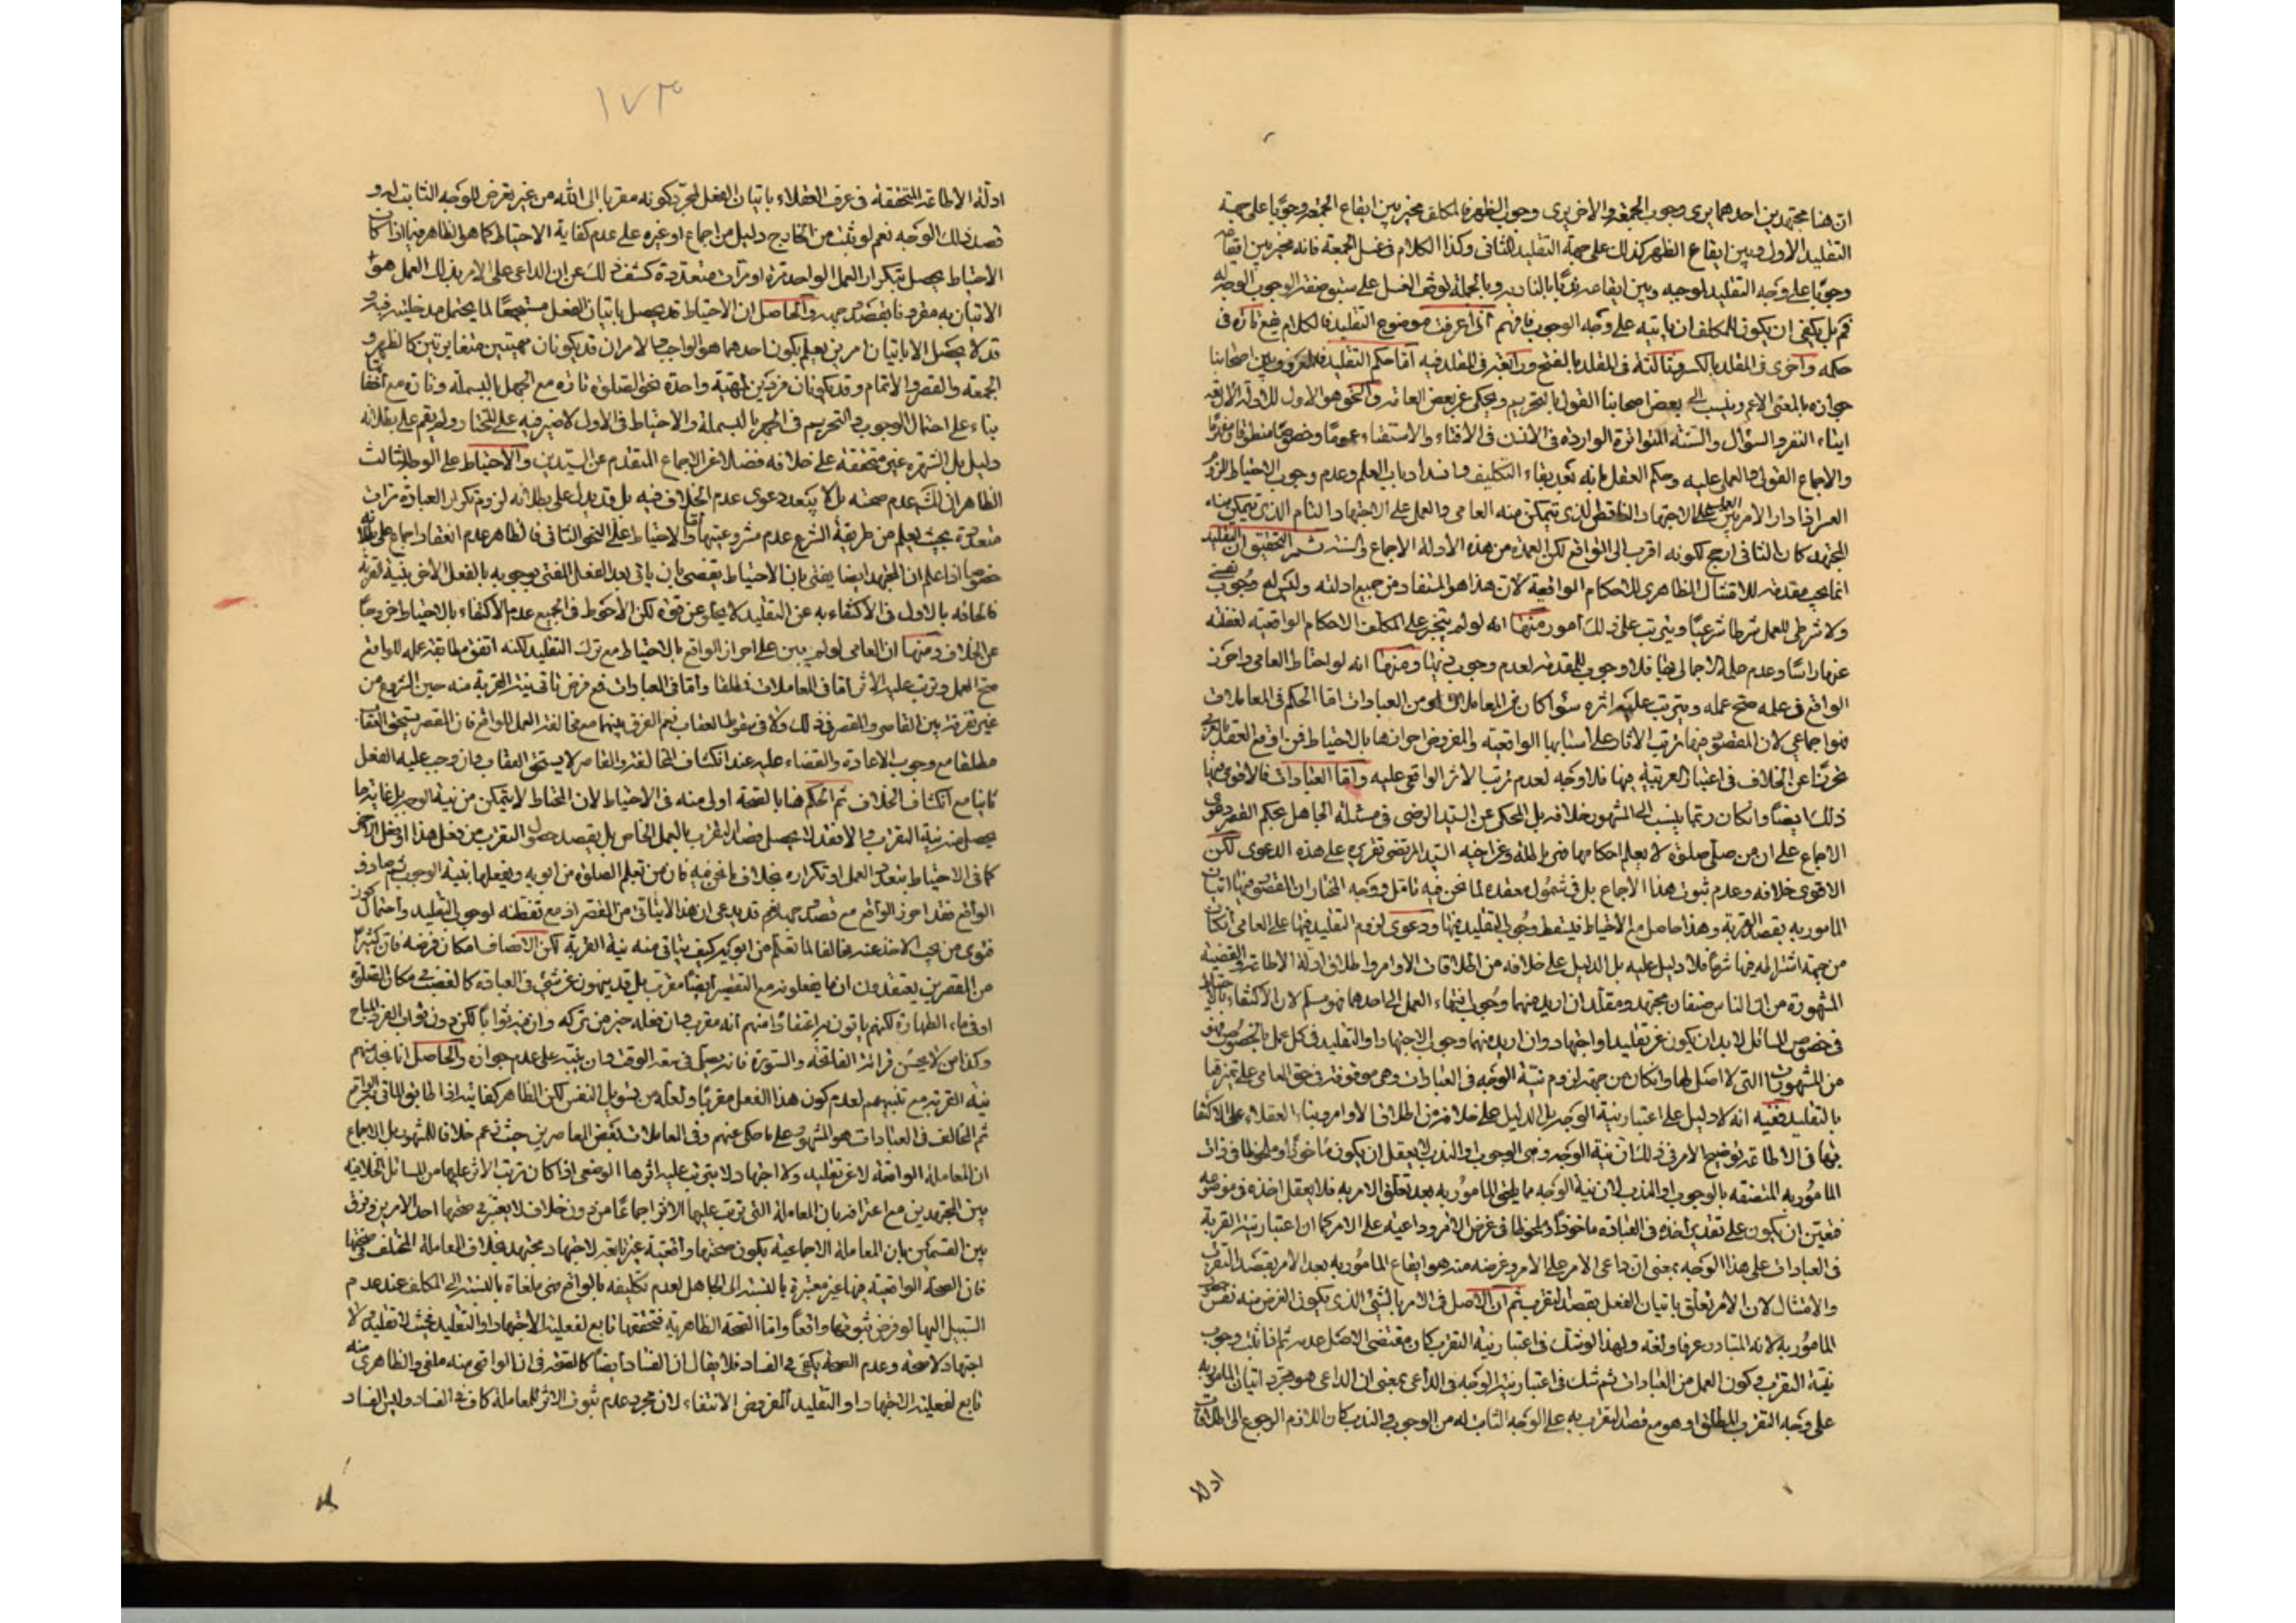 ان هنا مجتهدين احدهما يرى وجوب الجمعة والاخر يرى وجوب الظهر فالمكلف مخير بين ايقاع الجمعة وجوبا على جهة
التقليد الاول وبين ايقاع الظهر كذلك على جهة التقليد الثانى وكذا الكلام فى غسل الجمعة فانه مخير بين ايقاعه
وجوبا على وجه التقليد لوجبه وبين ايقاعه ندبا بالنادبه وبالجملة لا يتوقف الغسل على سبق صفة الوجوب الوجه له
فح بل يكفى ان يكون للمكلف ان ياتيه على وجه الوجوب فافهم اذا عرفت موضوع التقليد فالكلام يقع تارة فى
حكمه واخرى فى المقلد بالكسر وثالثة فى المقلد بالفتح ورابعة فى المقلد فيه اما حكم التقليد فالمعروف بين اصحابنا
جوازه بالمعنى الاعم وينسب الى بعض اصحابنا القول بالتحريم ويحكى عن بعض العامة والحق هو الاول للادلة الاربعة
ايتاء النفر والسؤال والسنة المتواترة الواردة فى الاذن فى الافتاء والاستفتاء عموما وخصوصا منطوقا ومفهوما
والاجماع القولى والعملى عليه وحكم العقل بانه بعد بقاء التكليف وانسداد باب العلم وعدم وجوب الاحتياط للزوم
العسر اذا دار الامر بين العمل على الاجتهاد الناقص الذى يتمكن منه العامى والعمل على الاجتهاد التام الذى يتمكن منه
المجتهد كان الثانى ارجح لكونه اقرب الى الواقع لكن العمدة من هذه الادلة الاجماع والسنة ثم التحقيق ان التقليد
انما يجب مقدمة للامتثال الظاهرى للاحكام الواقعية لان هذا هو المستفاد من جميع ادلته وليس له وجوب نفسى
ولا شرطى للعمل شرطا شرعيا ويترتب على ذلك امور منها انه لو لم يتنجز على المكلف الاحكام الواقعية لغفلته
عنها راسا وعدم علمه الاجمالى بها فلا وجوب للمقدمة لعدم وجوب ذيها ومنها انه لو احتاط العامى واحرز
الواقع فى عمله صح عمله ويترتب عليه اثره سواء كان من المعاملات او من العبادات اما الحكم فى المعاملات
فهو اجماعى لان المقصود منها ترتب الاثار على اسبابها الواقعية والمفروض احرازها بالاحتياط فمن اوقع العقد
تحرزا عن الخلاف فى اعتبار العربية فيها فلا وجه لعدم ترتب الاثر الواقعى عليه واما العبادات فالاقوى فيها
ذلك ايضا وان كان ربما ينسب الى المشهور خلافه بل المحكى عن السيد الرضى فى مسئلة الجاهل بحكم القصر دعوى
الاجماع على ان من صلى صلوة لا يعلم احكامها فهى باطلة وعن اخيه السيد المرتضى تقريره على هذه الدعوى لكن
الاقوى خلافه وعدم ثبوت هذا الاجماع بل فى شمول معقده لما نحن فيه تامل ووجه المختار ان المقصود منها اتيان
المامور به بقصد القربة وهذا حاصل مع الاحتياط فيسقط وجوب التقليد فيها ودعوى لزوم التقليد فيها على العامى ان كان
من جهة اشتراطه فيها شرعا فلا دليل عليه بل الدليل على خلافه من اطلاقات الاوامر واطلاق ادلة الاطاعة والقضية
المشهورة من ان الناس صنفان مجتهد ومقلد ان اريد منها وجوب انتهاء العمل الى احدهما فهو مسلم لان الاكتفاء بالاحتياط
فى خصوص المسائل لابد ان يكون عن تقليد او اجتهاد وان اريد منها وجوب الاجتهاد او التقليد فى كل عمل بالخصوص فهو
من المشهورات التى لا اصل لها وان كان من جهة لزوم نية الوجه فى العبادات وهى موقوفة فى حق العامى على تميزها
بالتقليد ففيه انه لا دليل على اعتبار نية الوجه بل الدليل على خلافه من اطلاق الاوامر وبناء العقلاء على الاكتفاء
بها فى الاطاعة توضيح الامر فى ذلك ان نية الوجه وهى الوجوب او الندب لا يعقل ان يكون ماخوذا وملحوظا فى ذات
المامور به المتصفة بالوجوب او الندب لان نية الوجه مما يلحق المامور به بعد تعلق الامر به فلا يعقل اخذه فى موضوعه
فتعين ان يكون على تقدير اخذه فى العبادة ماخوذا وملحوظا فى غرض الامر وداعيه على الامر كما ان اعتبار نية القربة
فى العبادات على هذا الوجه بمعنى ان داعى الامر على الامر وغرضه منه هو ايقاع المامور به بعد الامر بقصد التقرب
والامتثال لان الامر تعلق باتيان الفعل بقصد التقرب ثم ان الاصل فى الامر بالشىء الذى يكون الغرض منه نفس حصول
المامور به لانه المتبادر عرفا ولغة ولهذا لو شك فى اعتبار نية التقرب كان مقتضى الاصل عدمه ثم اذا ثبت وجوب
نية التقرب وكون العمل من العبادات ثم شك فى اعتبار نية الوجه فى الداعى بمعنى ان الداعى هو مجرد اتيان المامور به
على وجه التقرب المطلق او هو مع قصد التقرب به على الوجه الثابت له من الوجوب والندب كان اللازم الرجوع الى اطلاقات
ادلة
١٧٣
ادلة الاطاعة المتحققة فى عرف العقلاء باتيان الفعل لمجرد كونه مقربا الى الله من غير تعرض للوجه الثابت له و
قصد ذلك الوجه نعم لو ثبت من الخارج دليل من اجماع او غيره على عدم كفاية الاحتياط كما هو الظاهر فيما اذا كان
الاحتياط يحصل بتكرار العمل الواحد مرة او مرات متعددة كشف ذلك عن ان الداعى على الامر بذلك العمل هو
الاتيان به مقرونا بقصد وجهه والحاصل ان الاحتياط قد يحصل باتيان الفعل مستجمعا لما يحتمل مدخليته فيه و
قد لا يحصل الا باتيان امرين يعلم بكون احدهما هو الواجب والامران قد يكونان مهيتين متغايرتين كالظهر و
الجمعة والقصر والاتمام وقد يكونان فردين لمهية واحدة نحو الصلوة تارة مع الجهر بالبسملة وتارة مع اخفاتها
بناء على احتمال الوجوب والتحريم فى الجهر بالبسملة والاحتياط فى الاول لا ضير فيه على المختار ولم يقم على بطلانه
دليل بل الشهرة غير متحققة على خلافه فضلا عن الاجماع المتقدم عن السيدين والاحتياط على الوجه الثالث
الظاهر ان لك عدم صحته بل لا يبعد دعوى عدم الخلاف فيه بل قد يدل على بطلانه لزوم تكرار العبادة مرات
متعددة بحيث يعلم من طريقة الشرع عدم مشروعيتها واما الاحتياط على النحو الثانى فالظاهر عدم انعقاد اجماع على بطلانه
خصوصا اذا علم ان المجتهد ايضا يفتى بان الاحتياط يقتضى بان ياتى بعد الفعل المفتى بوجوبه بالفعل الاخر بنية القربة
فالحاقه بالاول فى الاكتفاء به عن التقليد لا يخلو عن قوة لكن الاحوط فى الجميع عدم الاكتفاء بالاحتياط خروجا
عن الخلاف ومنها ان العامى لو لم يبن على احراز الواقع بالاحتياط مع ترك التقليد لكنه اتفق مطابقة عمله للواقع
صح العمل وترتب عليه الاثر اما فى المعاملات فمطلقا واما فى العبادات فمع فرض تاتى نية القربة منه حين الشروع من
غير تفرقة بين القاصر والمقصر فى ذلك ولا فى سقوط العقاب نعم الفرق بينهما مع مخالفة العمل للواقع فان المقصر يستحق العقاب
مطلقا مع وجوب الاعادة والقضاء عليه عند انكشاف المخالفة والقاصر لا يستحق العقاب وان وجب عليه الفعل
ثانيا مع انكشاف الخلاف ثم الحكم هنا بالصحة اولى منه فى الاحتياط لان المحتاط لا يتمكن من نية الوجه بل غاية ما
يحصل منه نية التقرب والا فقد لا يحصل قصد التقرب بالعمل الخاص بل يقصد حصول التقرب من فعل هذا او فعل الاخر
كما فى الاحتياط بتعدد العمل او تكراره بخلاف ما نحن فيه فان من تعلم الصلوة من ابويه ويفعلها بنية الوجوب ثم صادف
الواقع فقد احرز الواقع مع قصد وجهه نعم قد يدعى ان هذا لا يتاتى من المقصر اذ مع تفطنه لوجوب التقليد واحتمال كون
فتوى من يجب الاخذ عنه مخالفا لما تعلم من ابويه كيف يتاتى منه نية القربة لكن الانصاف امكان فرضه فان كثيرا
من المقصرين يعتقدون ان ما يفعلونه مع التقصير ايضا مقرب بل قد ينهون عن شىء فى العبادة كالغصب فى مكان الصلوة
او فى ماء الطهارة لكنهم ياتون به اعتقادا منهم انه مقرب وان فعله خير من تركه وان فيه ثوابا لكن دون ثواب الفرد المباح
وكذا من لا يحسن قرائة الفاتحة والسورة فانه يصلى فى سعة الوقت وان نبه على عدم جوازه والحاصل انا نجد منهم
نية القربة مع تنبههم لعدم كون هذا الفعل مقربا ولعله من تسويل النفس لكن الظاهر كفايته اذا طابق الماتى به الواقع
ثم المخالف فى العبادات هو المشهور على ما حكى عنهم وفى المعاملات بعض المعاصرين حيث زعم خلافا للمشهور بل الاجماع
ان المعاملة الواقعة لا عن تقليد ولا اجتهاد لا يترتب عليه اثرها الوضعى اذا كان ترتب الاثر عليها من المسائل الخلافية
بين المجتهدين مع اعترافه بان المعاملة التى ترتب عليها الاثر اجماعا من دون خلاف لا يعتبر فى صحتها احد الامرين وفرق
بين القسمين بان المعاملة الاجماعية يكون صحتها واقعية غير تابعة لاجتهاد مجتهد بخلاف المعاملة المختلف فى صحتها
فان الصحة الواقعية فيها غير معتبرة بالنسبة الى الجاهل لعدم تكليفه بالواقع فهى ملغاة بالنسبة الى المكلف عند عدم
السبيل اليها لو فرض ثبوتها واقعا واما الصحة الظاهرية فتحققها تابع لفعلية الاجتهاد او التقليد فحيث لا تقليد ولا
اجتهاد لا صحة وعدم الصحة يكفى فى الفساد فلا يقال ان الفساد ايضا كالصحة فى ان الواقعى منه ملغى والظاهرى منه
تابع لفعلية الاجتهاد او التقليد المفروض الانتفاء لان مجرد عدم ثبوت الاثر للمعاملة كاف فى الفساد وليس الفساد